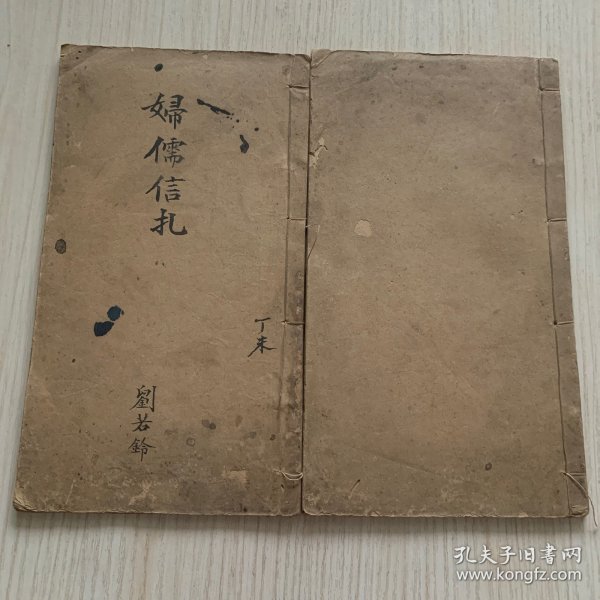 婦儒信扎
丁未
劉若鈴
孔夫子旧書网
www.kongfz.com